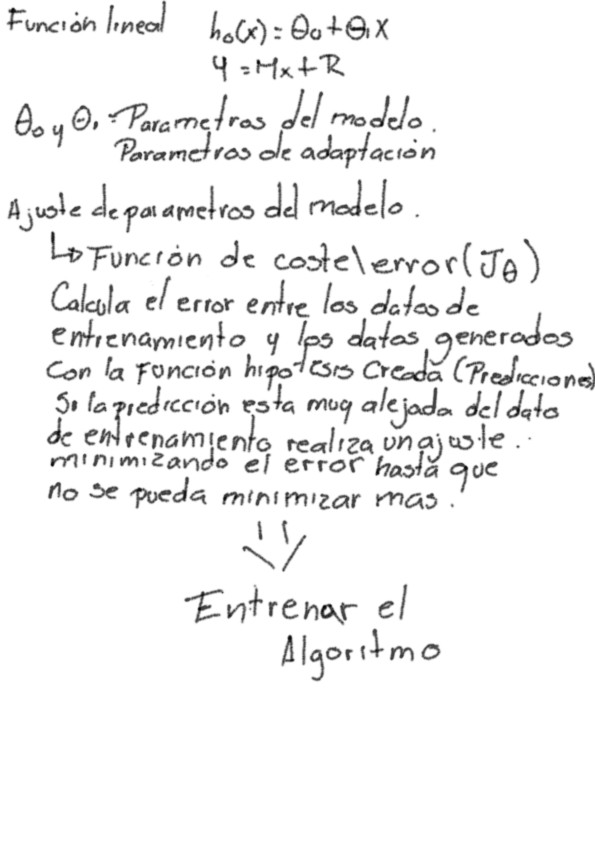 Función lineal h₀(x) = θ₀ + θ₁X
y = Mx + R
θ₀ y θ₁ = Parametros del modelo.
Parametros de adaptación
Ajuste de parametros del modelo.
↳ Función de coste\error (Jθ)
Calcula el error entre los datos de
entrenamiento y los datos generados
Con la Función hipotesis Creada (Predicciones)
Si la predicción esta muy alejada del dato
de entrenamiento realiza un ajuste.
minimizando el error hasta que
no se pueda minimizar mas.
Entrenar el
Algoritmo